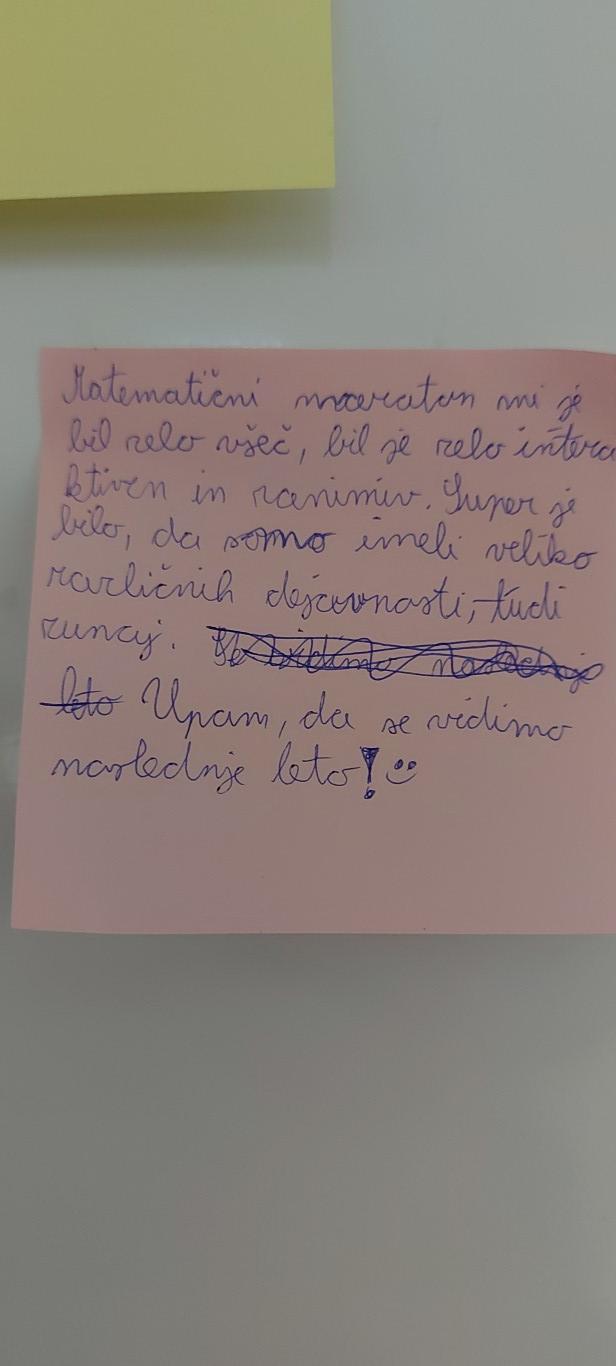 Matematični maraton mi je
bil zelo všeč, bil je zelo intera
ktiven in zanimiv. Super je
bilo, da smo imeli veliko
različnih dejavnosti, tudi
zunaj. Se vidimo naslednje
leto Upam, da se vidimo
naslednje leto! :)